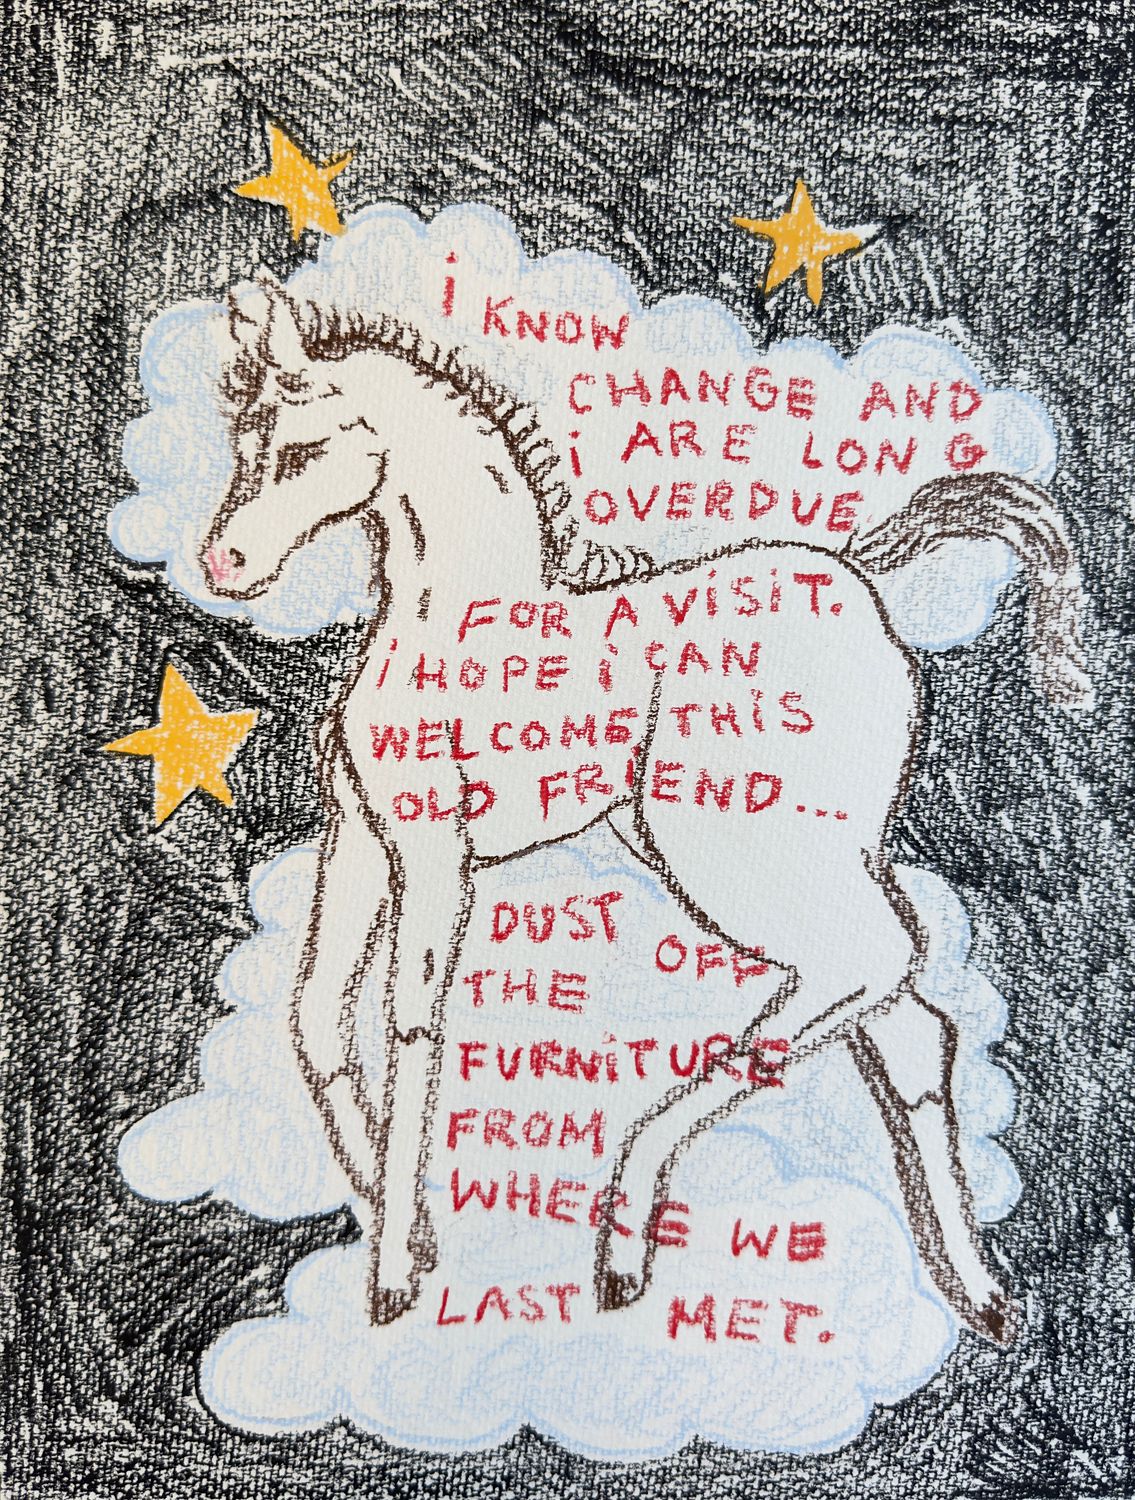 i KNOW
CHANGE AND
i ARE LONG
OVERDUE
FOR A ViSiT.
i HOPE i CAN
WELCOME THiS
OLD FRiEND...
DUST OFF
THE
FURNiTURE
FROM
WHERE WE
LAST MET.